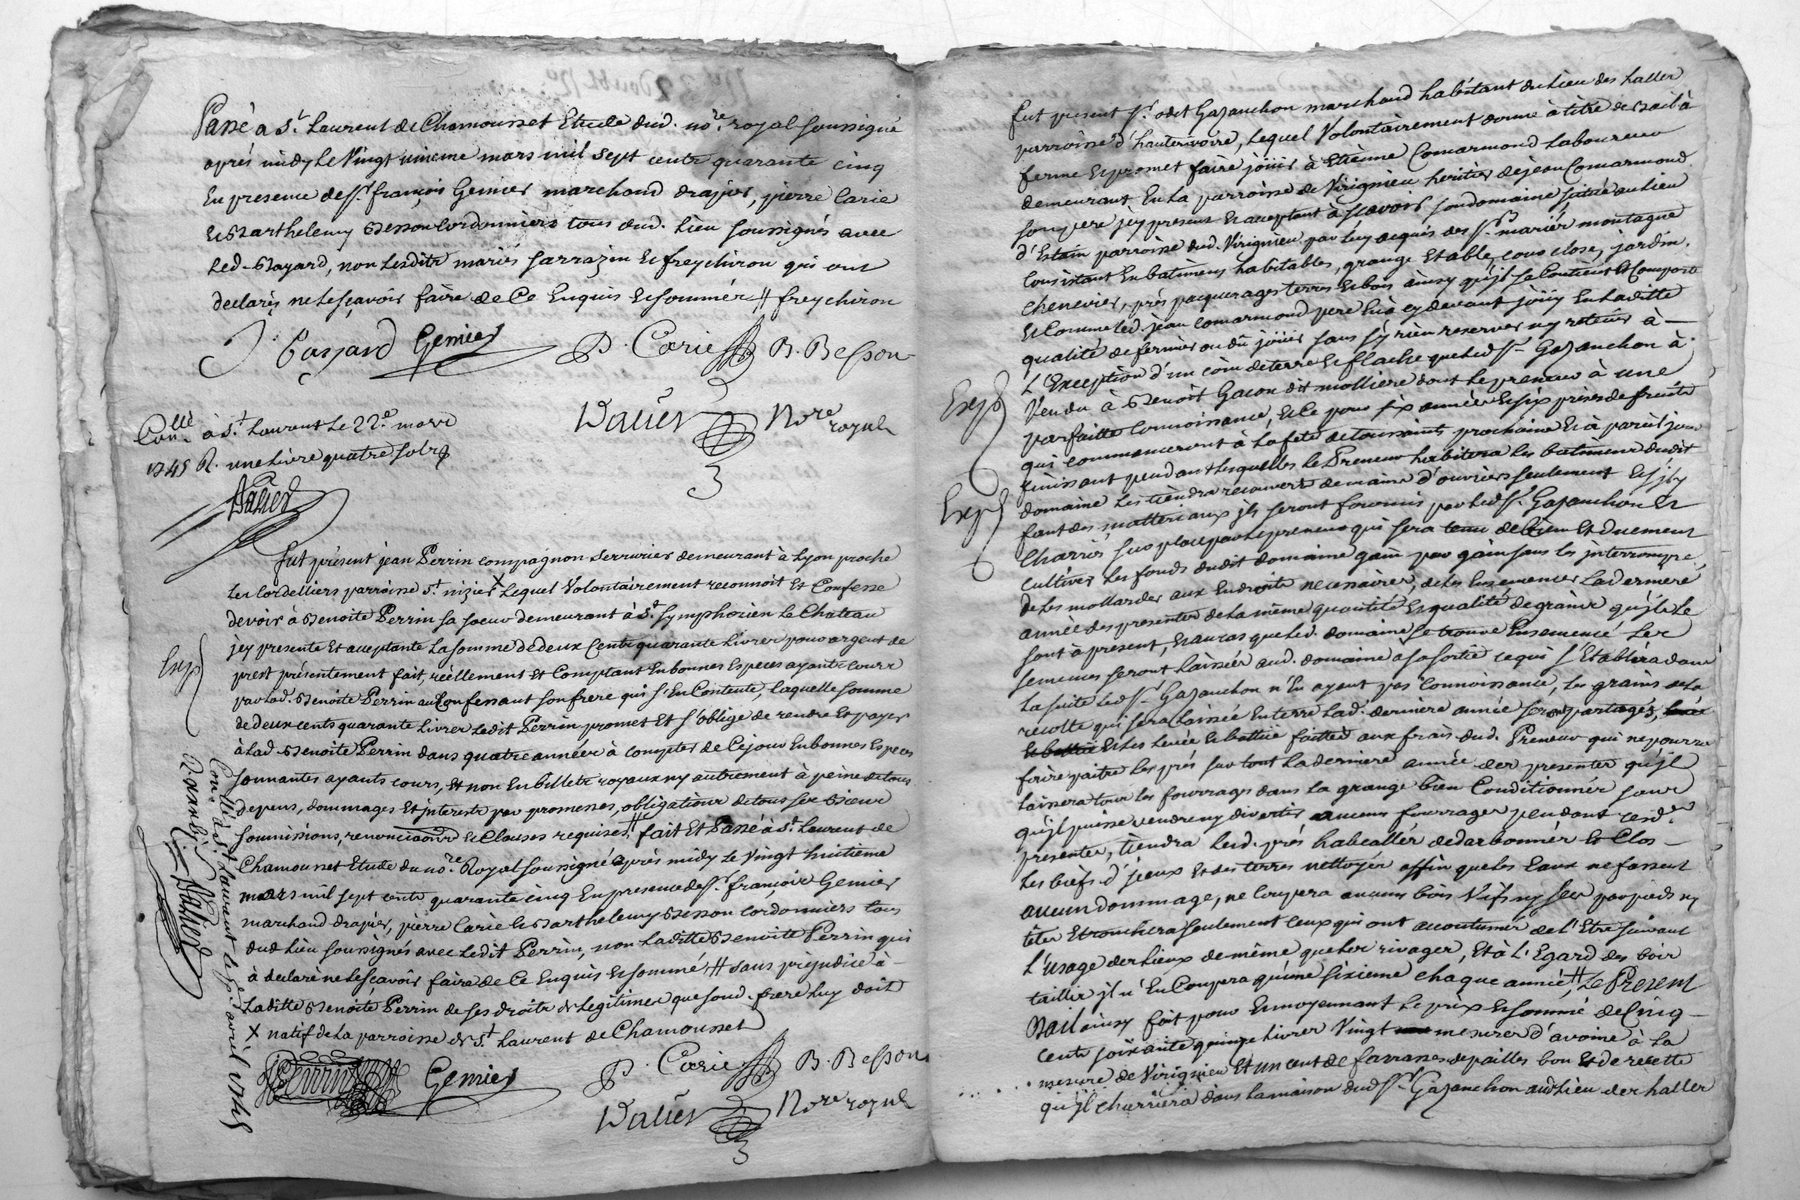 Passé a St. Laurent de Chamousset Etude dud. nore. royal soussigné
aprés midy le Vingt unieme mars mil sept cents quarante cinq
En presence de sr. françois Genier marchand drapier, pierre Carie
et Barthelemy Besson Cordonniers tous dud. lieu soussignés avec
led. Bayard, non lesdits mariés Sarrazin et freychiron qui ont
declarés ne le sçavoir faire de Ce Enquis et sommés // freychiron
Bayard Genier P. Carie B. Besson
Conllé à St. Laurent le 22e. mars
1745 R. une livre quatre sols
Nore royal
fut présent jean Perrin compagnon serrurier demeurant à Lyon proche
les Cordelliers parroisse St. nizier X Lequel Volontairement reconnoit et Confesse
devoir à Benoite Perrin sa soeur demeurant à St. Symphorien le Chateau
jcy presente et acceptante la somme de deux Cents quarante livres pour argent de
prest présentement fait réellement et Comptant En bonnes Especes ayants cours
par lad. Benoite Perrin au Confessant son frere qui s'En Contente, laquelle somme
de deux cents quarante livres ledit Perrin promet et s'oblige de rendre et payer
à lad. Benoite Perrin dans quatre années à compter de Cejour En bonnes Especes
sonnantes ayants cours, et non En billets royaux ny autrement à peine de tous
depens, dommages et jnterests par promesses, obligations de tous ses Biens
soumissions, renonciations et Clauses requises // fait et Passé à St. Laurent de
Chamousset Etude du nore. Royal soussigné Après midy le Vingt huitieme
mars mil sept cents quarante cinq En presence de sr. françois Genier
marchand drapier, pierre Carie et Barthelemy Besson cordonniers tous
dud. lieu soussignés avec ledit Perrin, non laditte Benoite Perrin qui
à declaré ne le sçavoir faire de Ce Enquis et sommé // sans préjudice à
laditte Benoite Perrin de ses droits de legitimes que soud. frere luy doit
X natif de la parroisse de St. Laurent de Chamousset
Perrin Genier P. Carie B. Besson
Nore royal
Conllé à St. Laurent le avril 1745
Exp
fut present sr. odet Gazanchon marchand habitant du lieu des haller
parroisse d'hauterivoire, Lequel Volontairement donne à titre de Bail à
ferme et promet faire jöuir à Etienne Comarmond Laboureur
demeurant En la parroisse de Virignieu heritier de jean Comarmond
son pere jcy present et acceptant à sçavoir son domaine situé au lieu
d'Estain parroisse dud. Virignieu par luy acquis des srs. mariés montagne
Consistant En batimens habitables, grange Etable, cour close, jardin,
Chenevier, prés pacquerages terres et bois ainsy qu'jl se Contient et Compose
et Comme led. jean Comarmond pere En à cy devant jöuy En laditte
qualité de fermier ou dû jöuir sans s'y rien reserver ny retenir à
L'Exception d'un coin de terre et flache que led. sr. Gazanchon à
Vendu à Benoit Gacon dit molliere dont le preneur à une
parfaitte Connoissance, et Ce pour six années et six prises de fruits
qui commenceront à la fete de toussaints prochaine et à pareil jour
finissant pendant lesquelles le Preneur habitera les batimens dudit
domaine les tiendra recouverts de mains d'ouvriers seulement
fautes, matteriaux jls seront fournis par led. sr. Gazanchon et
Charriés sur place par le preneur qui sera tenu de bien et Duement
Cultiver les fonds dudit domaine gain par gain sans les jnterrompre,
de les mollarder aux Endroits necessaires, de les Ensemencer la derniere
année des presentes de la même quantité et qualité de grains qu'jls le
sont à present, et au cas que led. domaine se trouve Ensemencé les
semences seront laissées aud. domaine a sa sortie ce qui s'Etablira dans
la suite led. sr. Gazanchon n'En ayant pas Connoissance, les grains de la
recolte qui sera laissée En terre lad. derniere année seront partagés,
Et les levée et battue faites aux frais dud. Preneur qui ne pourra
faire paitre les prés sur tout la derniere année des presentes qu'jl
laissera tous les fourrages dans la grange bien Conditionnés sans
qu'jl puisse vendre ny divertir aucuns fourrages pendant cesd.
presentes, tiendra lesd. prés et Clos
les biefs d'jceux et des terres nettoyés affin que les Eaux ne fassent
aucun dommage, ne Coupera aucuns bois Vifs ny sec par pieds ny
têtes Et tronchera seulement ceux qui ont accoutumés de l'Etre suivant
L'usage des lieux de même que les rivages, Et à l'Egard des bois
taillis jl n'En Coupera qu'une sixieme chaque année, // Le Present
Bail ainsy fait pour Enmoyennant le prix et somme de Cinq
cents soixante quinze livres Vingt mesures d'avoine à la
mesure de Virignieu et un cent de farrasses de pailles bon et de recette
qu'jl charriera dans la maison dud. sr. Gazanchon audit lieu des haller
Exp
Exp